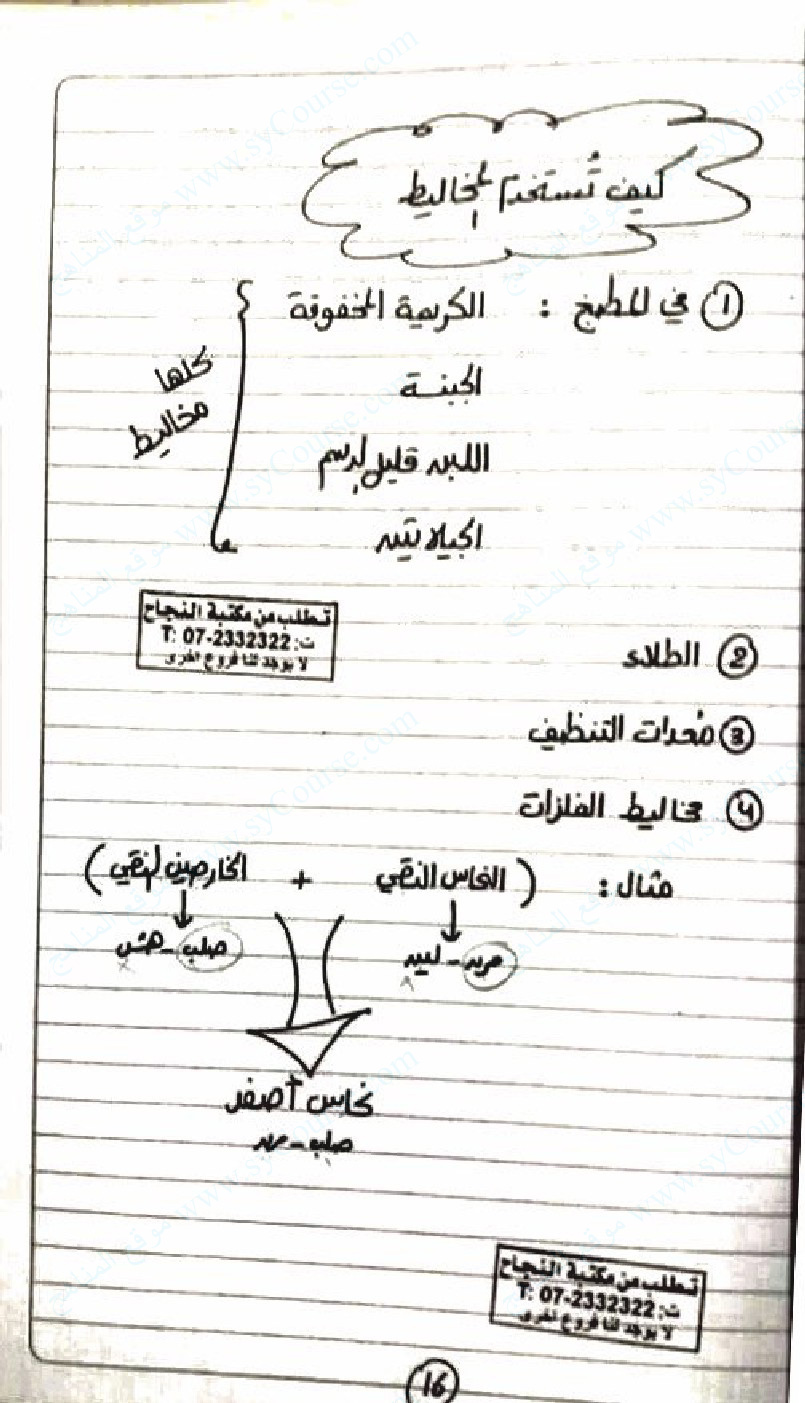 كيف تُستخدم المخاليط
① في المطبخ : الكريمة المخفوقة
الجبنة
اللبن قليل الدسم
الجيلاتين
كلها
مخاليط
تطلب من مكتبة النجاح
ت: T: 07-2332322
لا يوجد لنا فروع اخرى
② الطلاء
③ معدات التنظيف
④ مخاليط الفلزات
مثال : ( النحاس النقي + الخارصين النقي )
مرن - لين
صلب - هش
نحاس أصفر
صلب - مرن
تطلب من مكتبة النجاح
ت: T: 07-2332322
لا يوجد لنا فروع اخرى
16
موقع المناهج www.syCourse.com